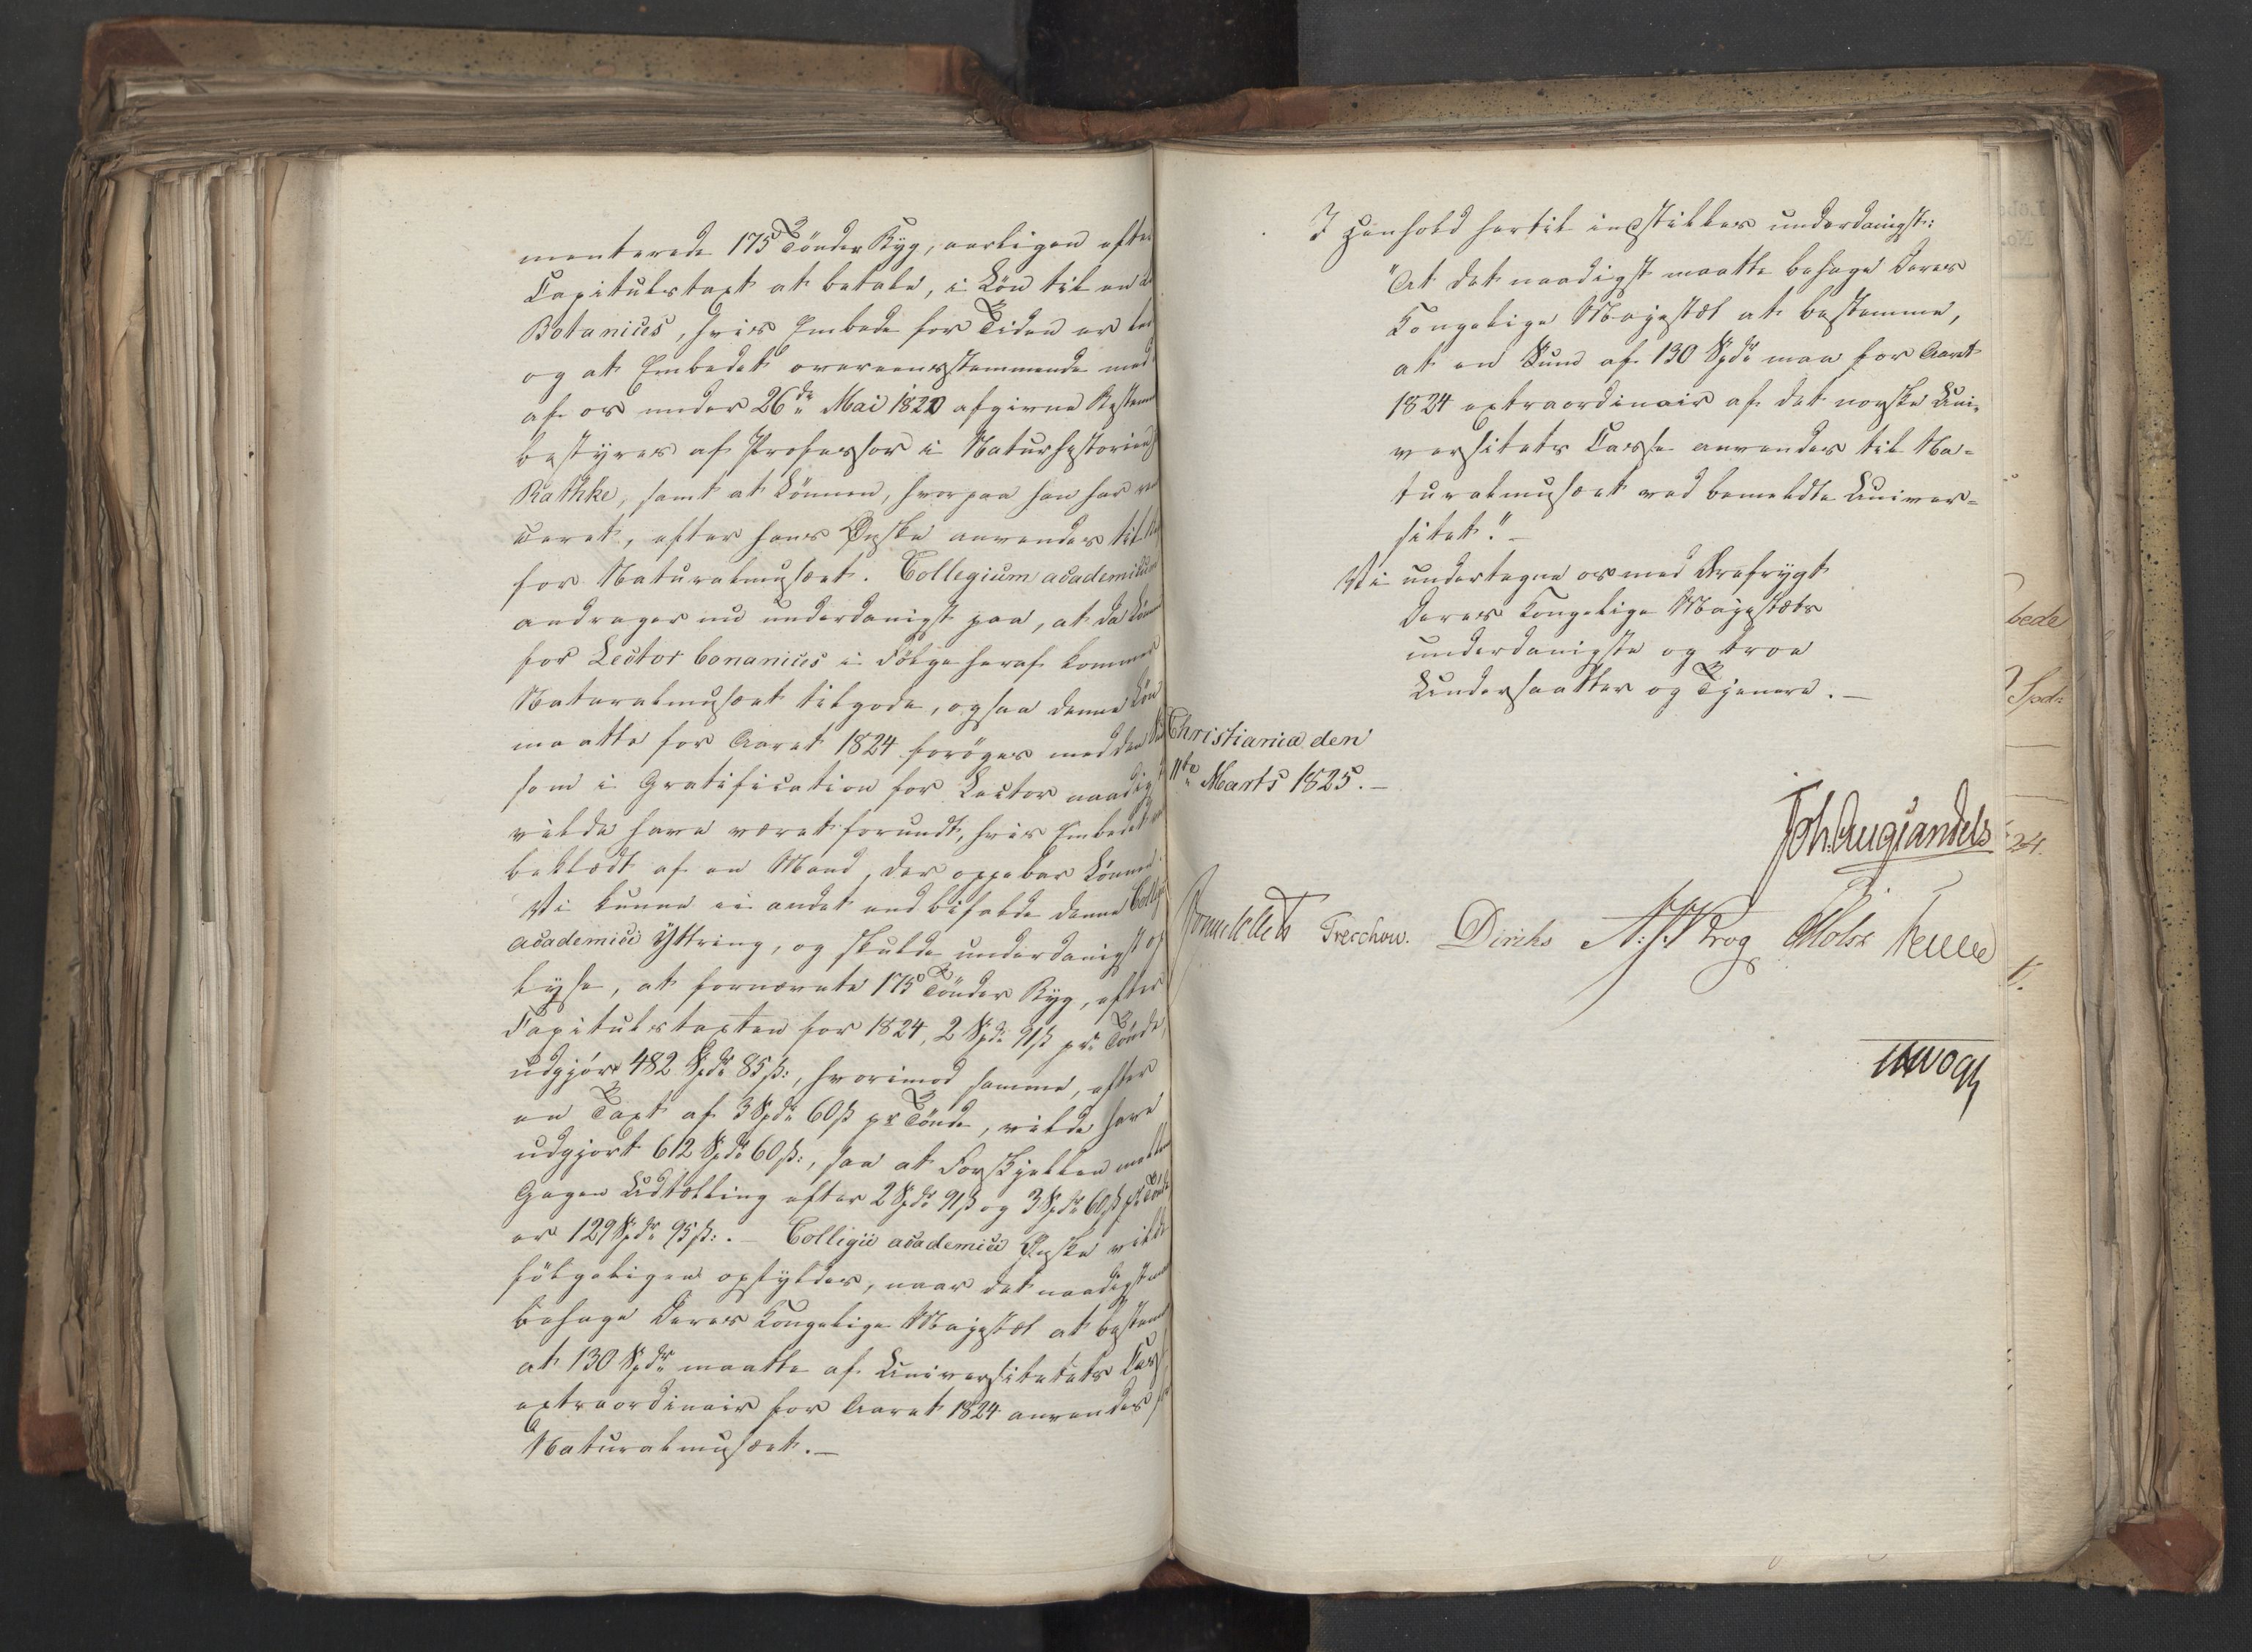 menterede 175 Tönder Byg, aarligen efter
Capitulstaxt at betale, i Lön til en
Botanices, hvis Embede for Tiden er
og at Embedet overeensstemmende med
af os under 26de Mai 1820 afgivne
bestyres af Professor i Naturhistorien
Rathke, samt at Lönnen, hvorpaa han har
ceret, efter hans Ønske anvendes til
for Naturalmusæet. Collegium academicum
andrager nu underdanigst paa, at da Lönnen
for Lector bonanices i Fölge heraf kommer
Naturalmusæet tilgode, ogsaa denne Lön
maatte for Aaret 1824 foröges med den
som i Gratification for Lector naadigst
vilde have været forundt, hvis Embedet
beklædt af en Mand, der oppebar Lönnen.
Vi kunne ei andet end bifalde denne
academici Yttring, og skulde underdanigst op
lyse, at fornævnte 175 Tönder Byg, efter
Capitulstaxten for 1824, 2 Spdr 91 ß pr Tönde,
udgjör 482 Spdr 85 ß:, hvorimod samme, efter
en Taxt af 3 Spdr 60 ß pr Tönde, vilde have
udgjort 612 Spdr 60 ß:, saa at Forskjellen mellem
Gagen Udtælling efter 2 Spdr 91 ß og 3 Spdr 60 ß pr Tönde
er 129 Spdr 95 ß:. - Colligii academici Ønske vilde
fölgeligen opfyldes, naar det naadigst
behage Deres Kongelige Majestæt at bestemme
at 130 Spdr maatte af Universitetets
extraordinair for Aaret 1824 anvendes
Naturalmusæet. -
I Henhold hertil indstilles underdanigst:
"At det naadigst maatte behage Deres
Kongelige Majestæt at bestemme,
at en Sum af 130 Spdr maa for Aaret
1824 extraordinair af det norske Uni-
versitets Casse anvendes til Na-
turalmusæet ved bemeldte Univer-
sitet." -
Vi undertegne os med Ærefrygt
Deres Kongelige Majestæts
underdanigste og troe
Undersaatter og Tjenere. -
Christiania den
11te Marts 1825. -
Joh. Aug Sandels
Treschow. Diriks Krog Holst
bede
Spd:
24.